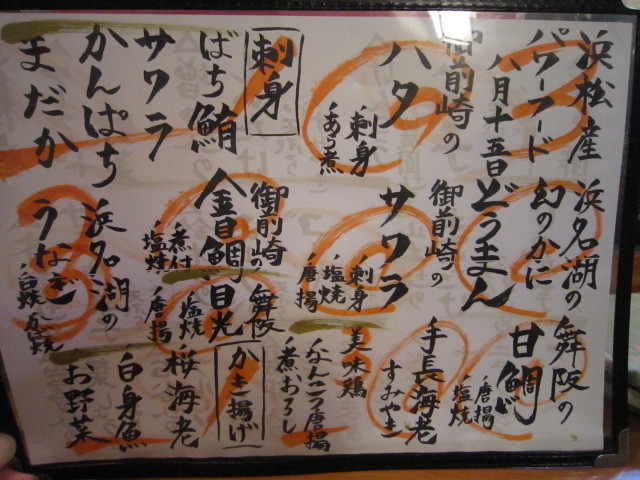 浜松産
パワーフード
八月十五日
御前崎の
ハタ
刺身
あら煮
刺身
ばち鮪
サワラ
かんぱち
まだか
浜名湖の
幻のかに
どうまん
御前崎の
サワラ
刺身
塩焼
唐揚
御前崎の
金目鯛
煮付
塩焼
浜名湖の
うなぎ
白焼
舞阪の
甘鯛
唐揚
塩焼
手長海老
すみやき
美味鶏
なんこつ唐揚
煮おろし
舞阪
目光
塩焼
唐揚
かき揚げ
桜海老
白身魚
お野菜